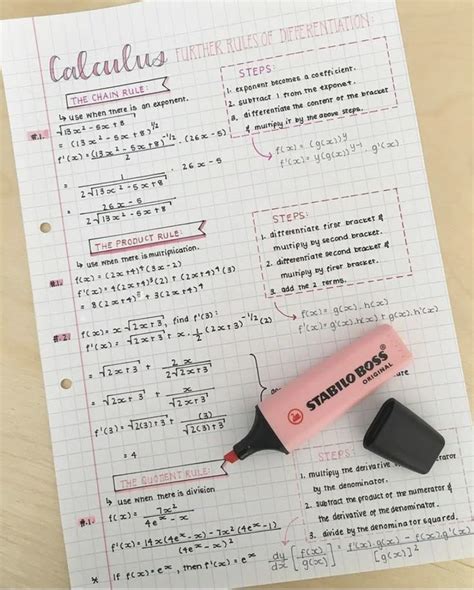 Calculus FURTHER RULES OF DIFFERENTIATION:
THE CHAIN RULE:
↳ use when there is an exponent.
#.1. √13x² - 5x + 8
= (13x² - 5x + 8)^1/2
f'(x) = (13x² - 5x + 8)^-1/2 / 2 . (26x - 5)
= 1 / 2√13x² - 5x + 8 . 26x - 5
= 26x - 5 / 2√13x² - 5x + 8
STEPS:
1. exponent becomes a coefficient.
2. subtract 1 from the exponent.
3. differentiate the content of the bracket
& multiply it by the above steps.
f(x) = (g(x))^y
f'(x) = y(g(x))^y-1 . g'(x)
THE PRODUCT RULE:
↳ use when there is multiplication.
#.1. f(x) = (2x+4)⁴(3x - 2)
f'(x) = 4(2x+4)³(2) + (2x+4)⁴(3)
= 8(2x+4)³ + 3(2x+4)⁴
#.2. f(x) = x√2x+3, find f'(3):
f'(x) = √2x+3 + x . 1/2 (2x+3)^-1/2 (2)
= √2x+3 + 2x / 2√2x+3
= √2x+3 + x / √2x+3
f'(3) = √2(3)+3 + (3) / √2(3)+3
= 4
STEPS:
1. differentiate first bracket &
multiply by second bracket.
2. differentiate second bracket &
multiply by first bracket.
3. add the 2 terms.
f(x) = g(x).h(x)
f'(x) = g'(x).h(x) + g(x).h'(x)
STABILO BOSS
ORIGINAL
THE QUOTIENT RULE:
↳ use when there is division
#.1. f(x) = 7x² / 4e^x - x
f'(x) = 14x(4e^x - x) - 7x²(4e^x - 1) / (4e^x - x)²
* If f(x) = e^x, then f'(x) = e^x
STEPS:
1. multiply the derivative
by the denominator.
2. subtract the product of the numerator &
the derivative of the denominator.
3. divide by the denominator squared.
dy/dx [f(x)/g(x)] = f'(x).g(x) - f(x).g'(x) / [g(x)]²